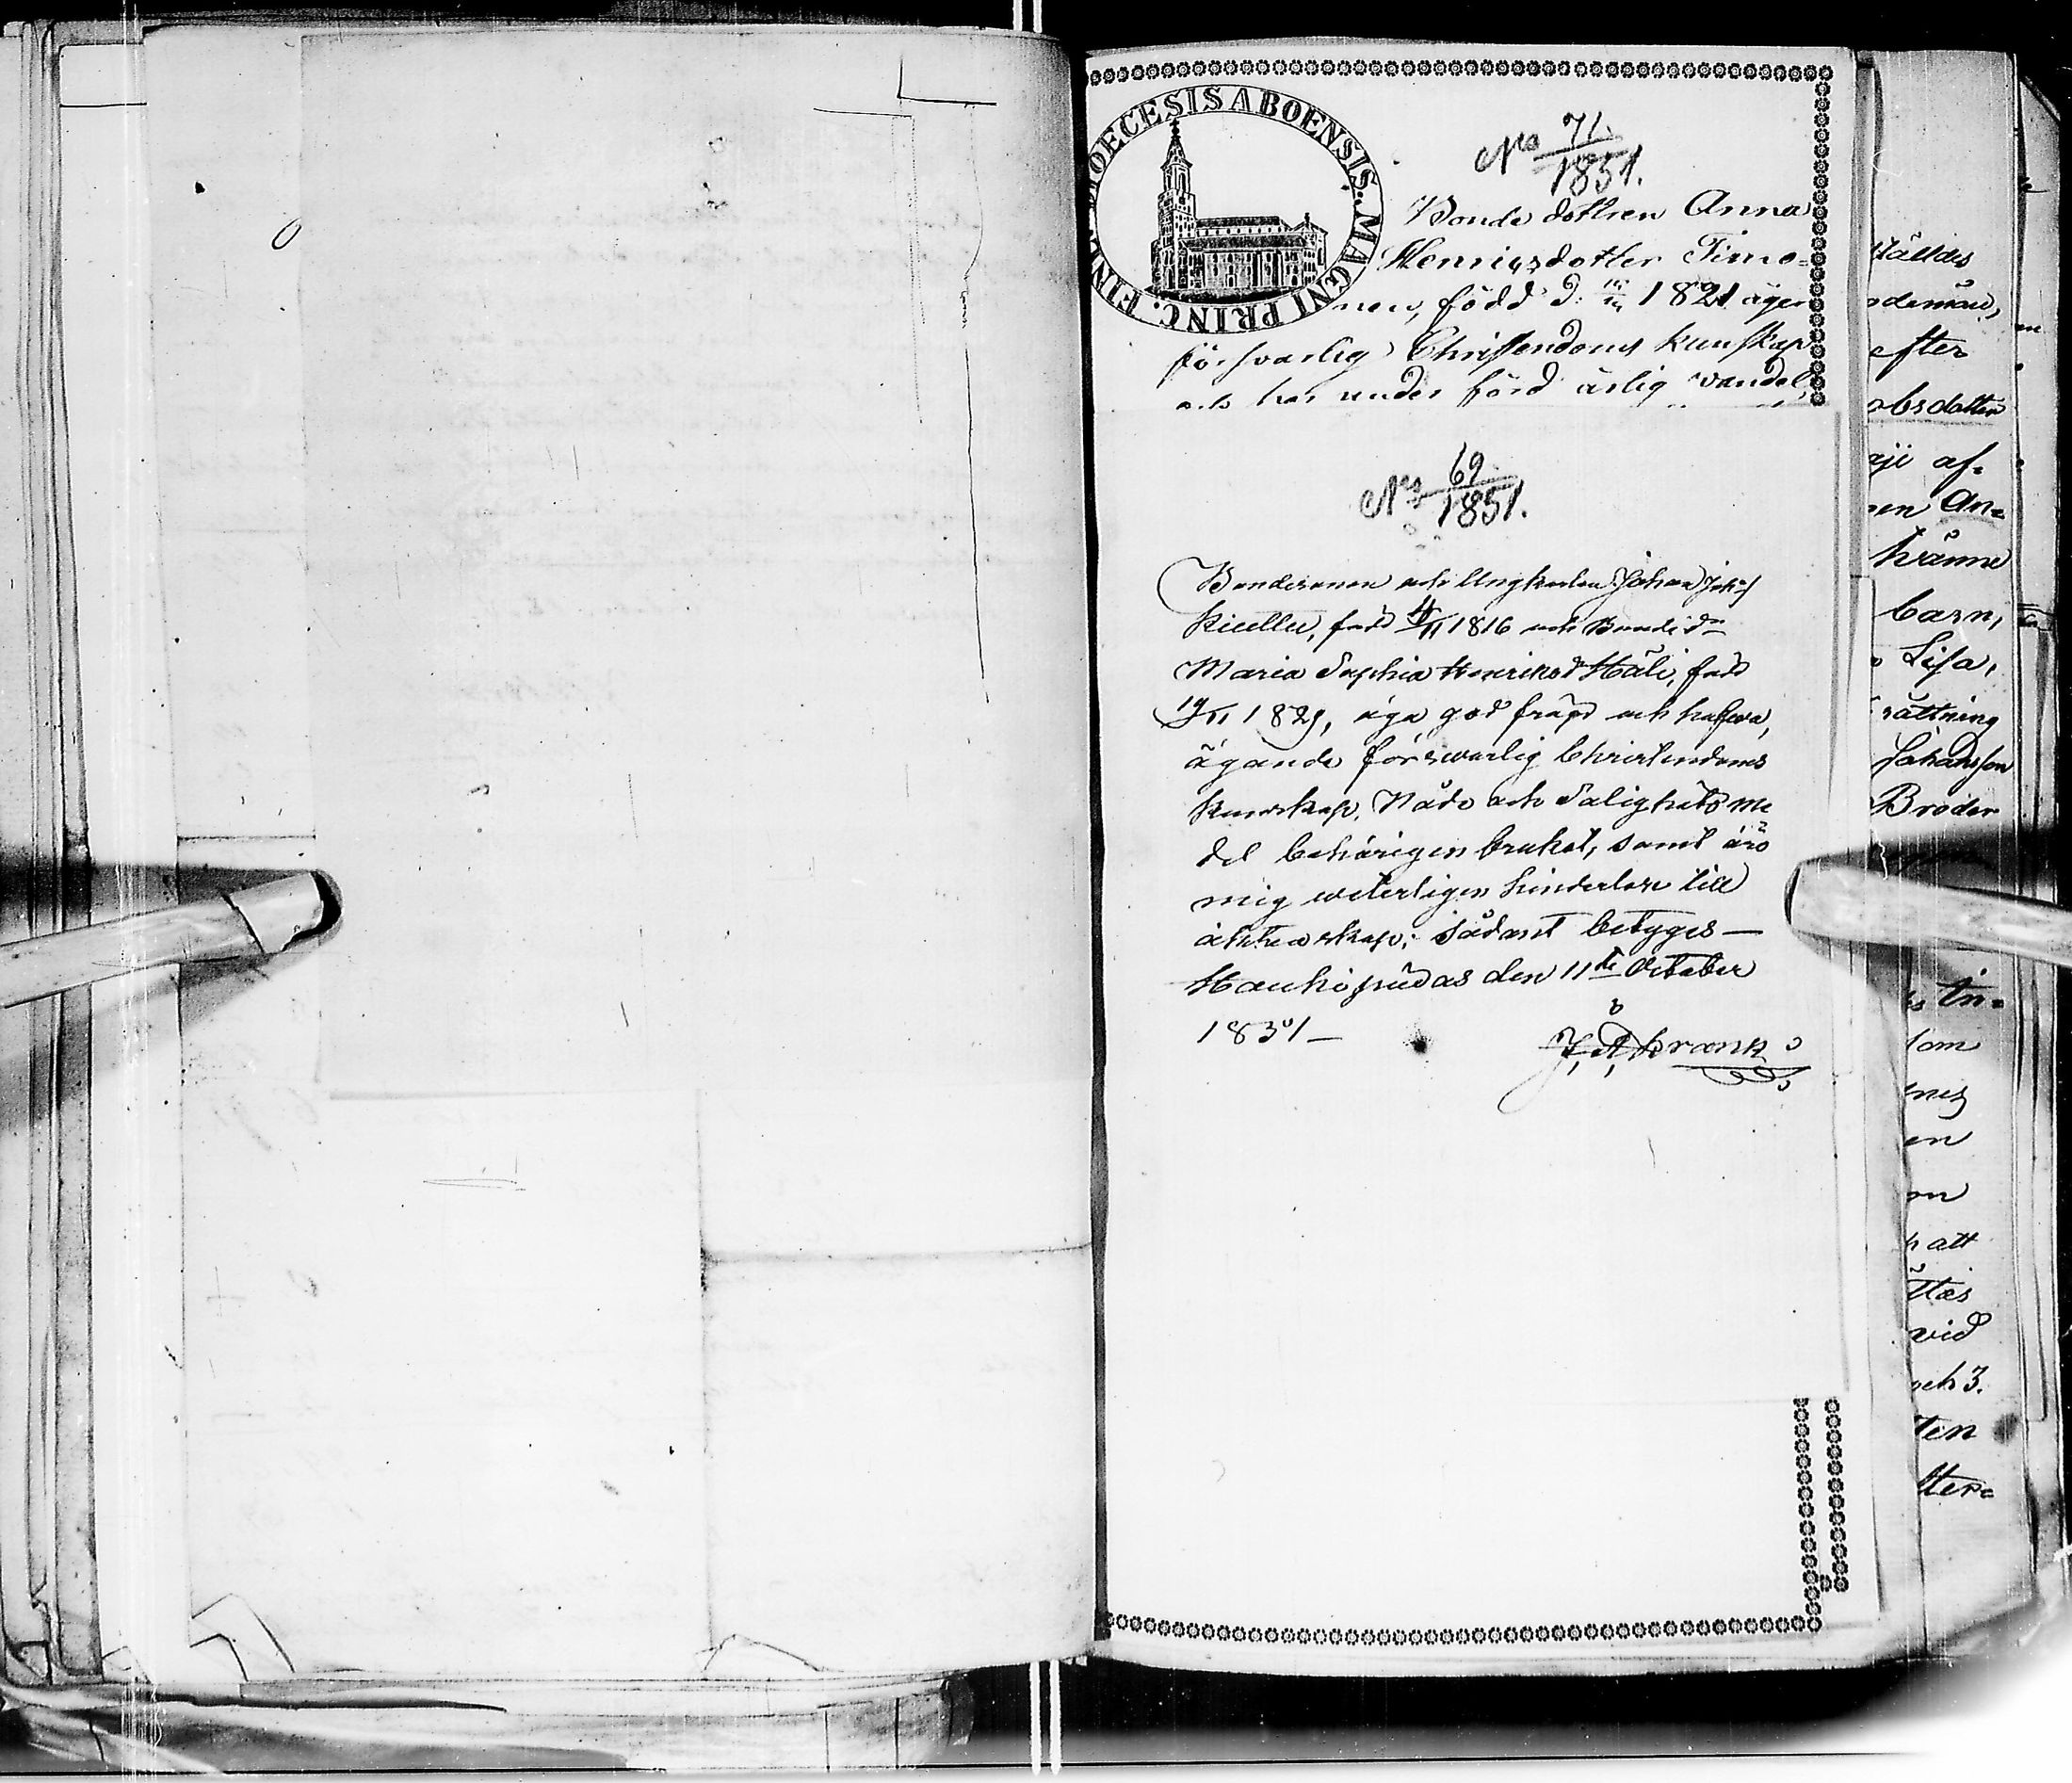 DIOECESIS ABOENSIS. MAGNI PRINC. FINL.
No 71.
1851.
Bonde dottren Anna
Henricsdotter Timo=
nen, född d. 1821 äger
försvarlig Christendoms kunskap
och har under förd ärlig vandel,
No 69.
1851.
Bondesonen och Ungkarlen Johan Joh:s
född 4/11 1816 och Bonde dn
Maria Sophia Henriksdr Häli, född
19/11 1829, äga god fräjd och hafwa,
ägande förswarlig Christendoms
kunskap, Nåde och Salighets me
del behörigen brukat, samt äro
mig veterligen hinderlöse till
äktenskap; Sådant betyges —
Haukipudas den 11te October
1851 —
J. A. Frank
ställdes
efter
obsdotter
af=
en An=
barn,
Lisa,
rättning
Johansson
Broder
in=
som
en
att
vid
och 3.
ten